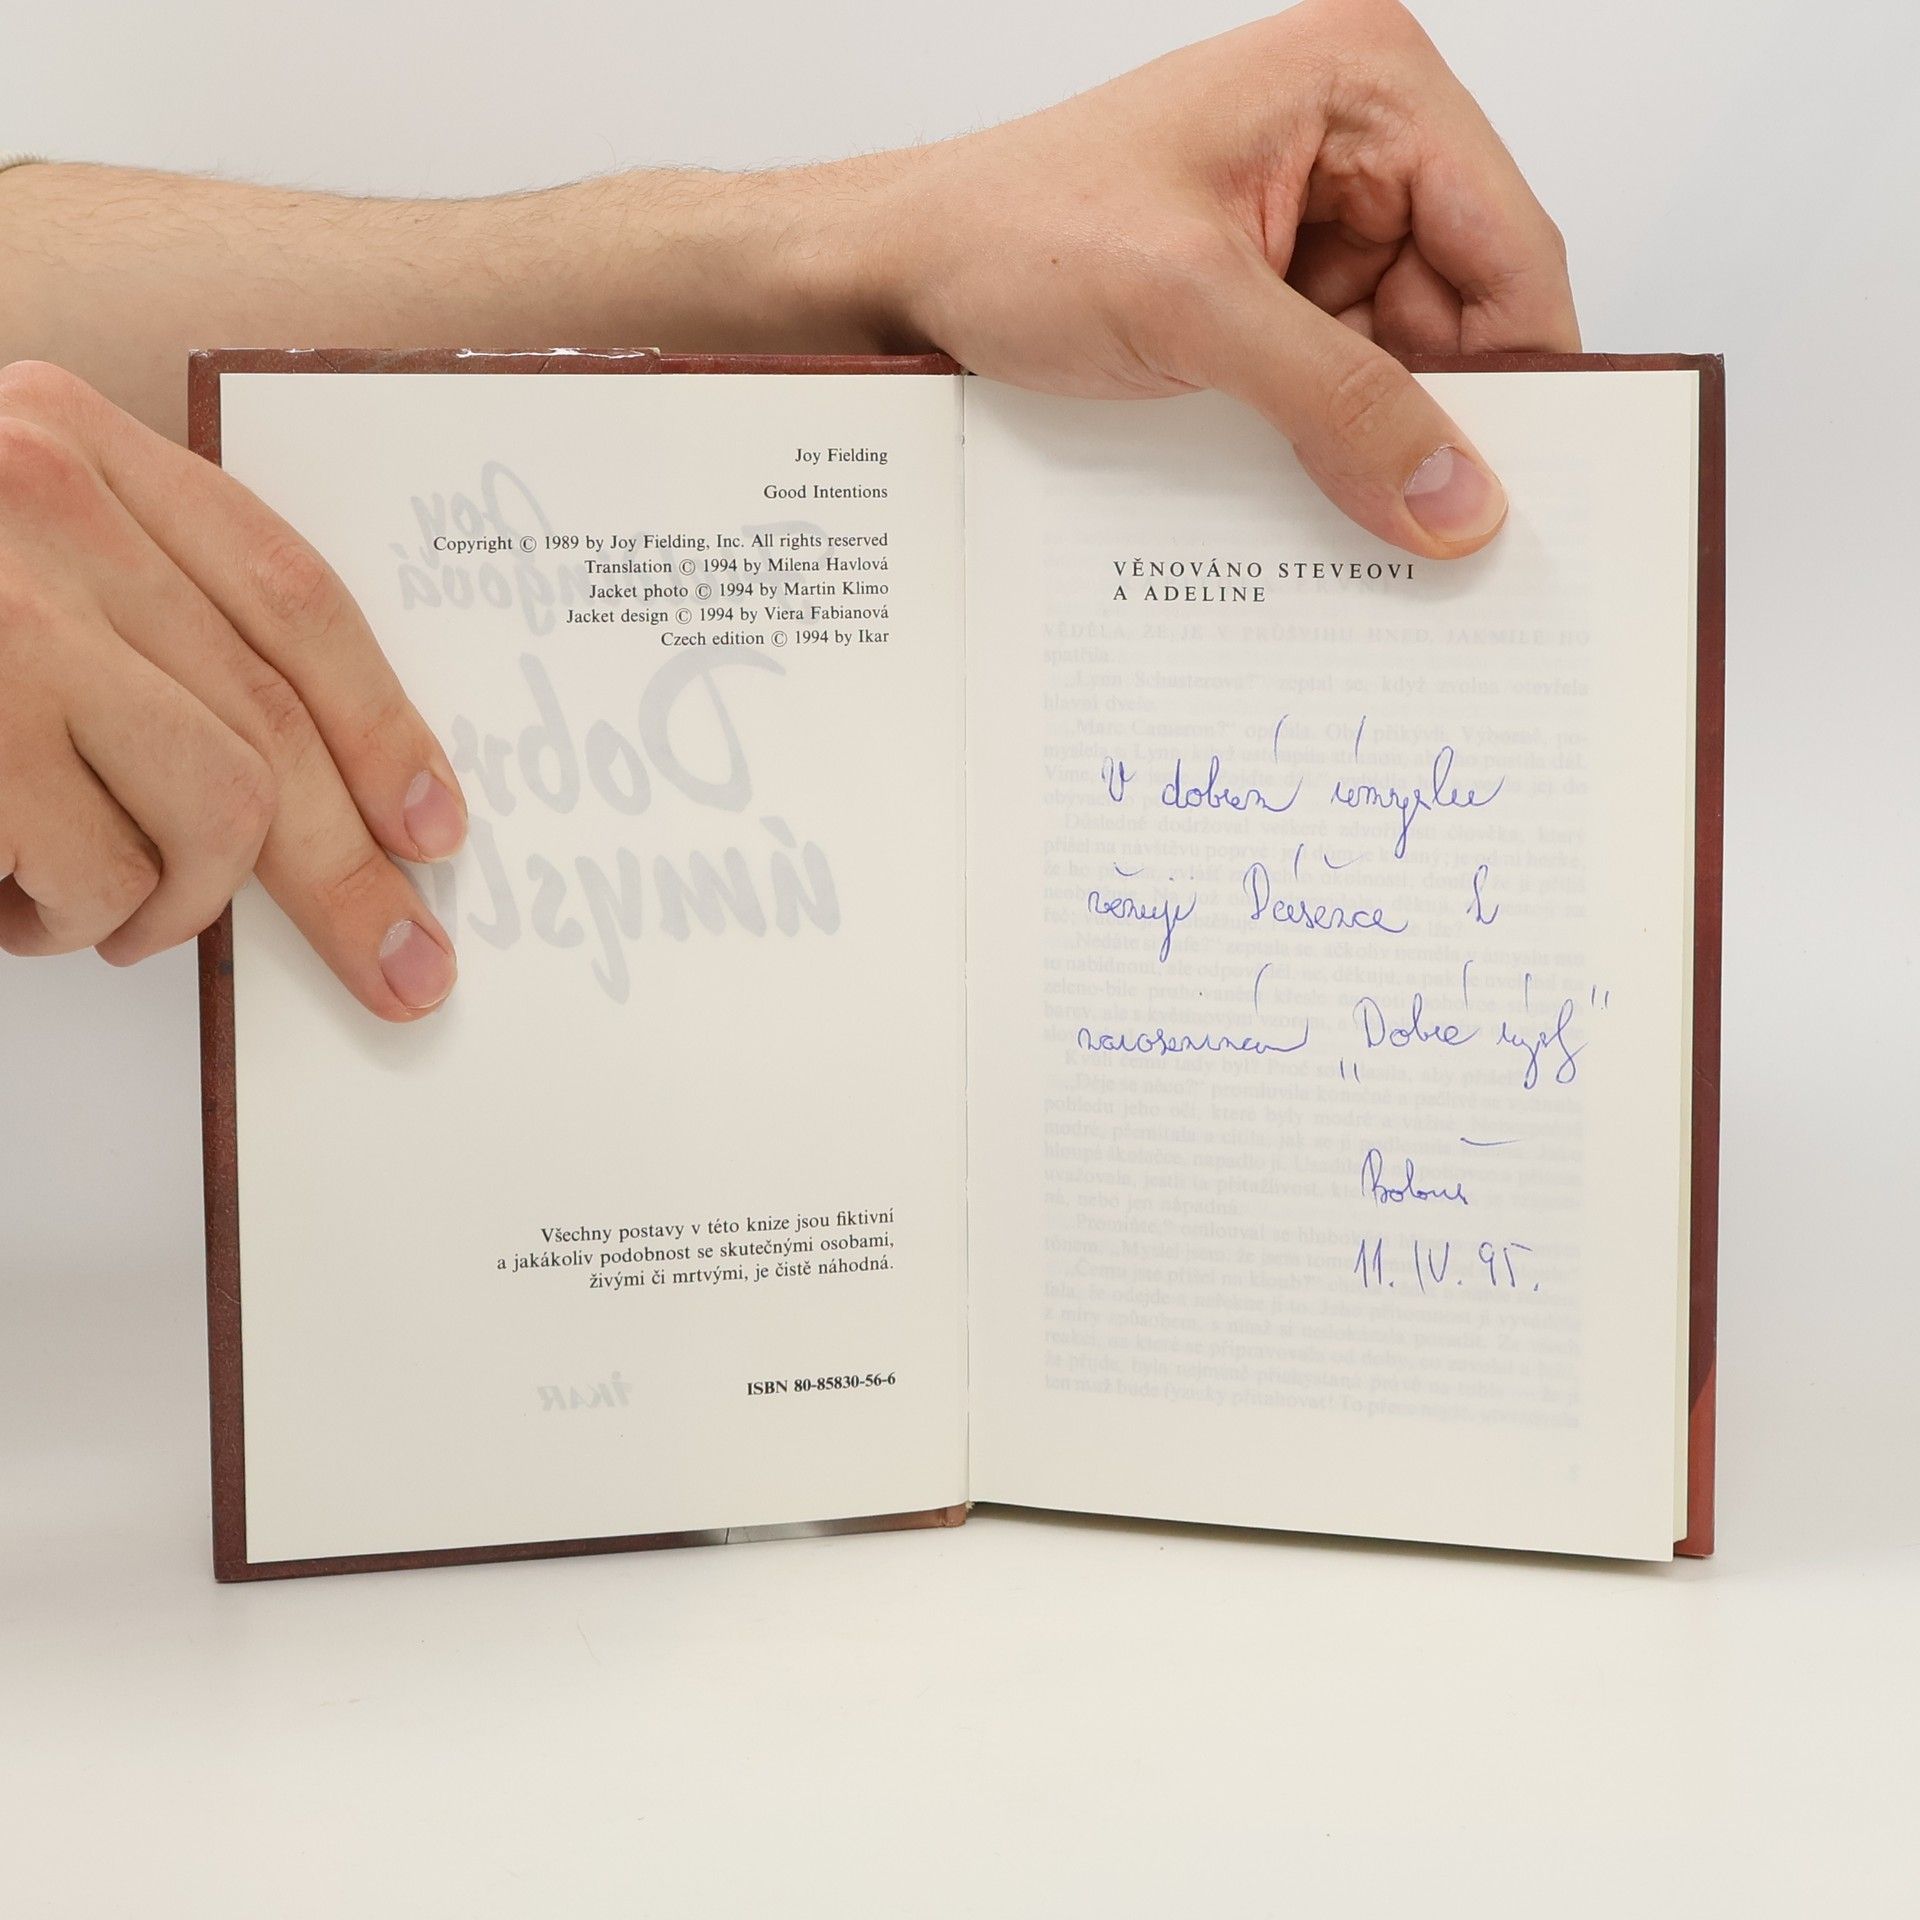 Joy Fielding
Good Intentions
Copyright © 1989 by Joy Fielding, Inc. All rights reserved
Translation © 1994 by Milena Havlová
Jacket photo © 1994 by Martin Klimo
Jacket design © 1994 by Viera Fabianová
Czech edition © 1994 by Ikar
Všechny postavy v této knize jsou fiktivní
a jakákoliv podobnost se skutečnými osobami,
živými či mrtvými, je čistě náhodná.
ISBN 80-85830-56-6
VĚNOVÁNO STEVEOVI
A ADELINE
V dobrém úmyslu
věnuji k
narozeninám „Dobré
11. IV. 95.